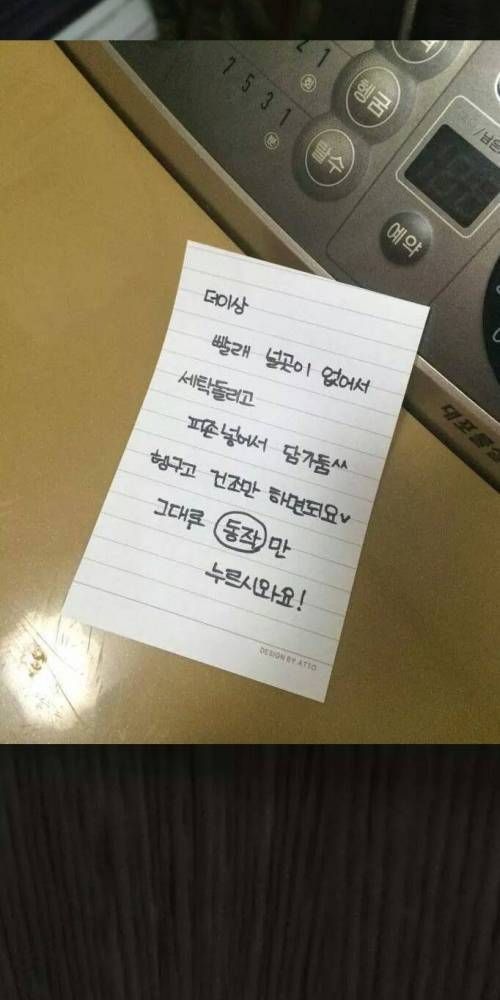 2 1
회
헹굼
7 5 3 1
분
탈수
예약
더이상
빨래 널곳이 없어서
세탁돌리고
퍼존넣어서 담가둠^^
헹구고 건조만 하면되요v
그대로 동작만
누르시와요!
DESIGN BY ATTO